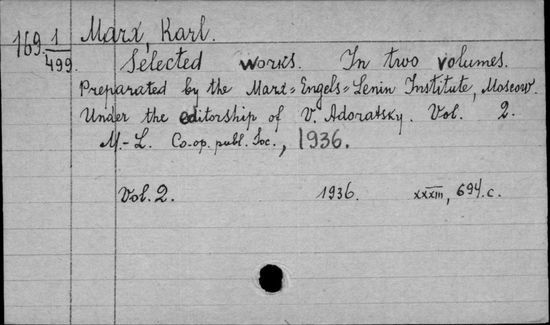 Marx, Karl.
169 1/499.
Selected works. In two volumes.
Preparated by the Marx=Engels=Lenin Institute, Moscow.
Under the editorship of V. Adoratsky. Vol. 2.
M.-L. Co-op. publ. Soc., 1936.
Vol. 2. 1936. XXXIII, 694 c.